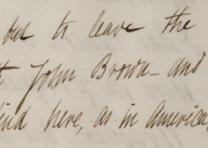 but to leave the
John Brown - and
here, as in America,